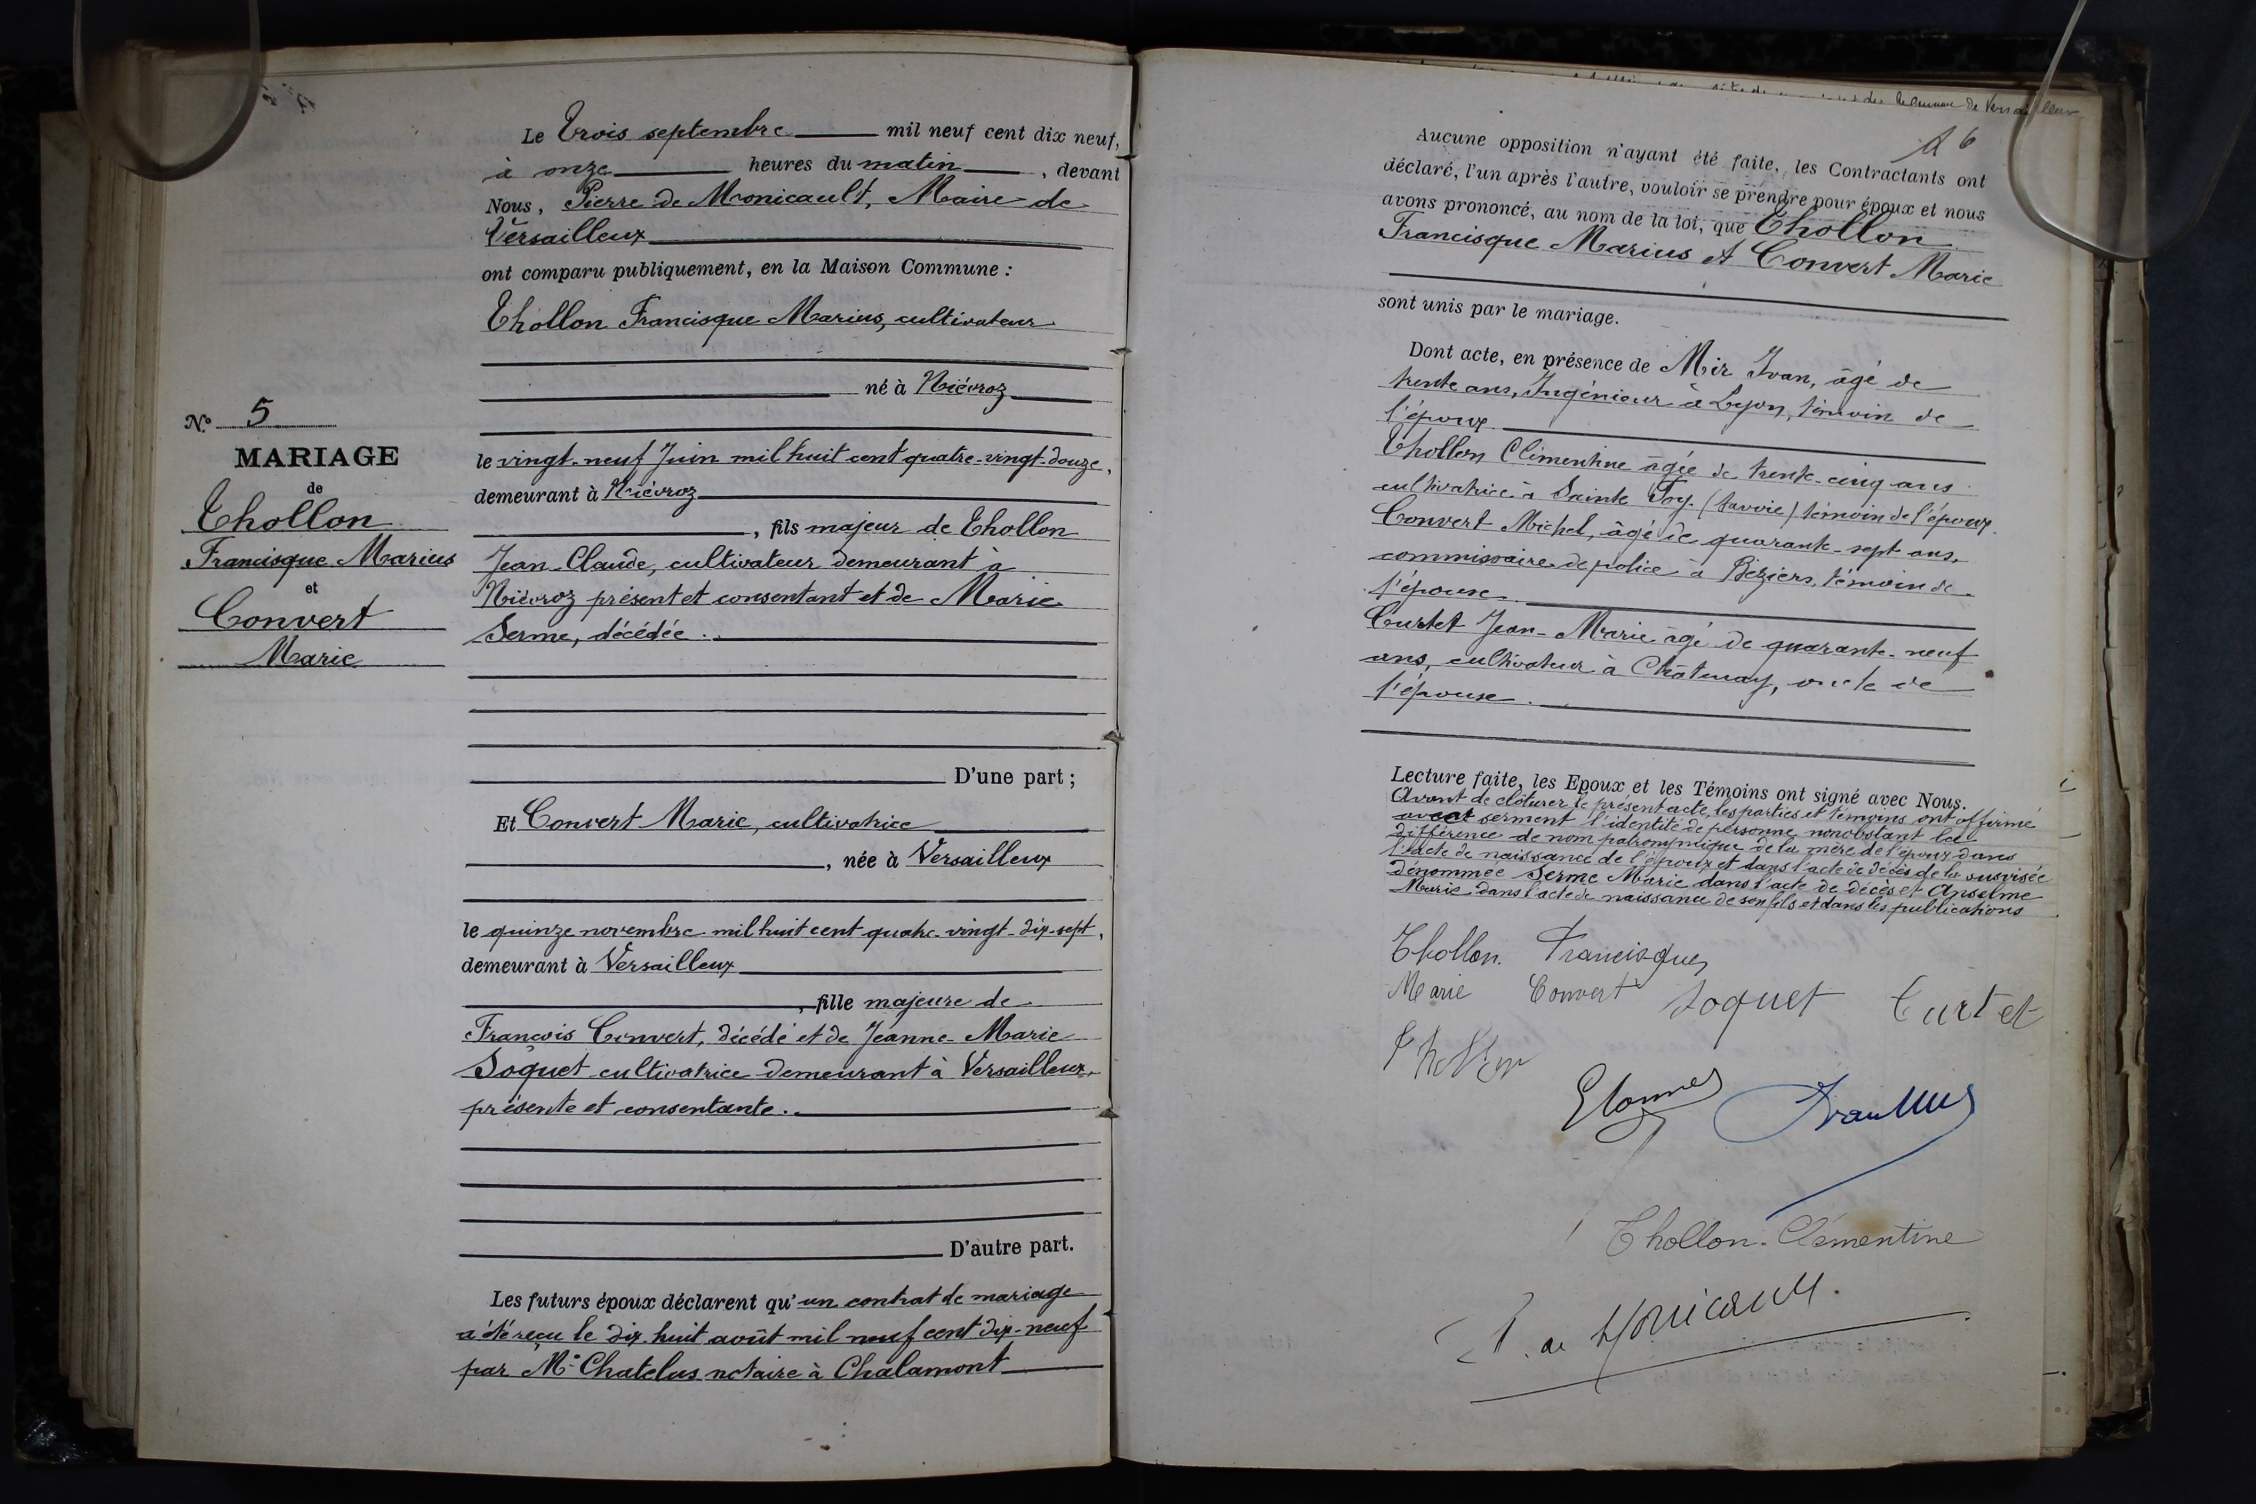 N.º 5
MARIAGE
de
Thollon
Francisque Marius
et
Convert
Marie
Le Trois septembre mil neuf cent dix neuf,
à onze heures du matin, devant
Nous, Pierre de Monicault, Maire de
Versailleux
ont comparu publiquement, en la Maison Commune :
Thollon Francisque Marius, cultivateur
né à Niévroz
le vingt-neuf Juin mil huit cent quatre-vingt-douze,
demeurant à Niévroz
, fils majeur de Thollon
Jean-Claude, cultivateur demeurant à
Niévroz présent et consentant et de Marie
Serme, décédée.
D'une part ;
Et Convert Marie, cultivatrice
, née à Versailleux
le quinze novembre mil huit cent quatre-vingt-dix-sept,
demeurant à Versailleux
, fille majeure de
François Convert, décédé et de Jeanne-Marie
Soquet cultivatrice demeurant à Versailleux,
présente et consentante.
D'autre part.
Les futurs époux déclarent qu'un contrat de mariage
a été reçu le dix huit août mil neuf cent dix-neuf
par Me Chatelus notaire à Chalamont
de Versailleux
6
Aucune opposition n'ayant été faite, les Contractants ont
déclaré, l'un après l'autre, vouloir se prendre pour époux et nous
avons prononcé, au nom de la loi, que Thollon
Francisque Marius et Convert Marie
sont unis par le mariage.
Dont acte, en présence de Mir Ivan, âgé de
trente ans, Ingénieur à Lyon, témoin de
l'époux
Thollon Clémentine âgée de trente-cinq ans
cultivatrice à Sainte Foy (Savoie) témoin de l'époux.
Convert Michel, âgé de quarante-sept ans,
commissaire de police à Béziers, témoin de
l'épouse.
Curtet Jean-Marie âgé de quarante-neuf
ans, cultivateur à Châtenay, oncle de
l'épouse.
Lecture faite, les Epoux et les Témoins ont signé avec Nous.
Avant de clôturer le présent acte, les parties et témoins ont affirmé
avec serment l'identité de personne nonobstant la
différence de nom patronymique de la mère de l'époux dans
l'acte de naissance de l'époux et dans l'acte de décès de la susvisée
dénommée Serme Marie dans l'acte de décès et Anselme
Marie dans l'acte de naissance de son fils et dans les publications
Thollon Francisque
Marie Convert Soquet Curtet
Thollon
Thollon Clémentine
P. de Monicault.